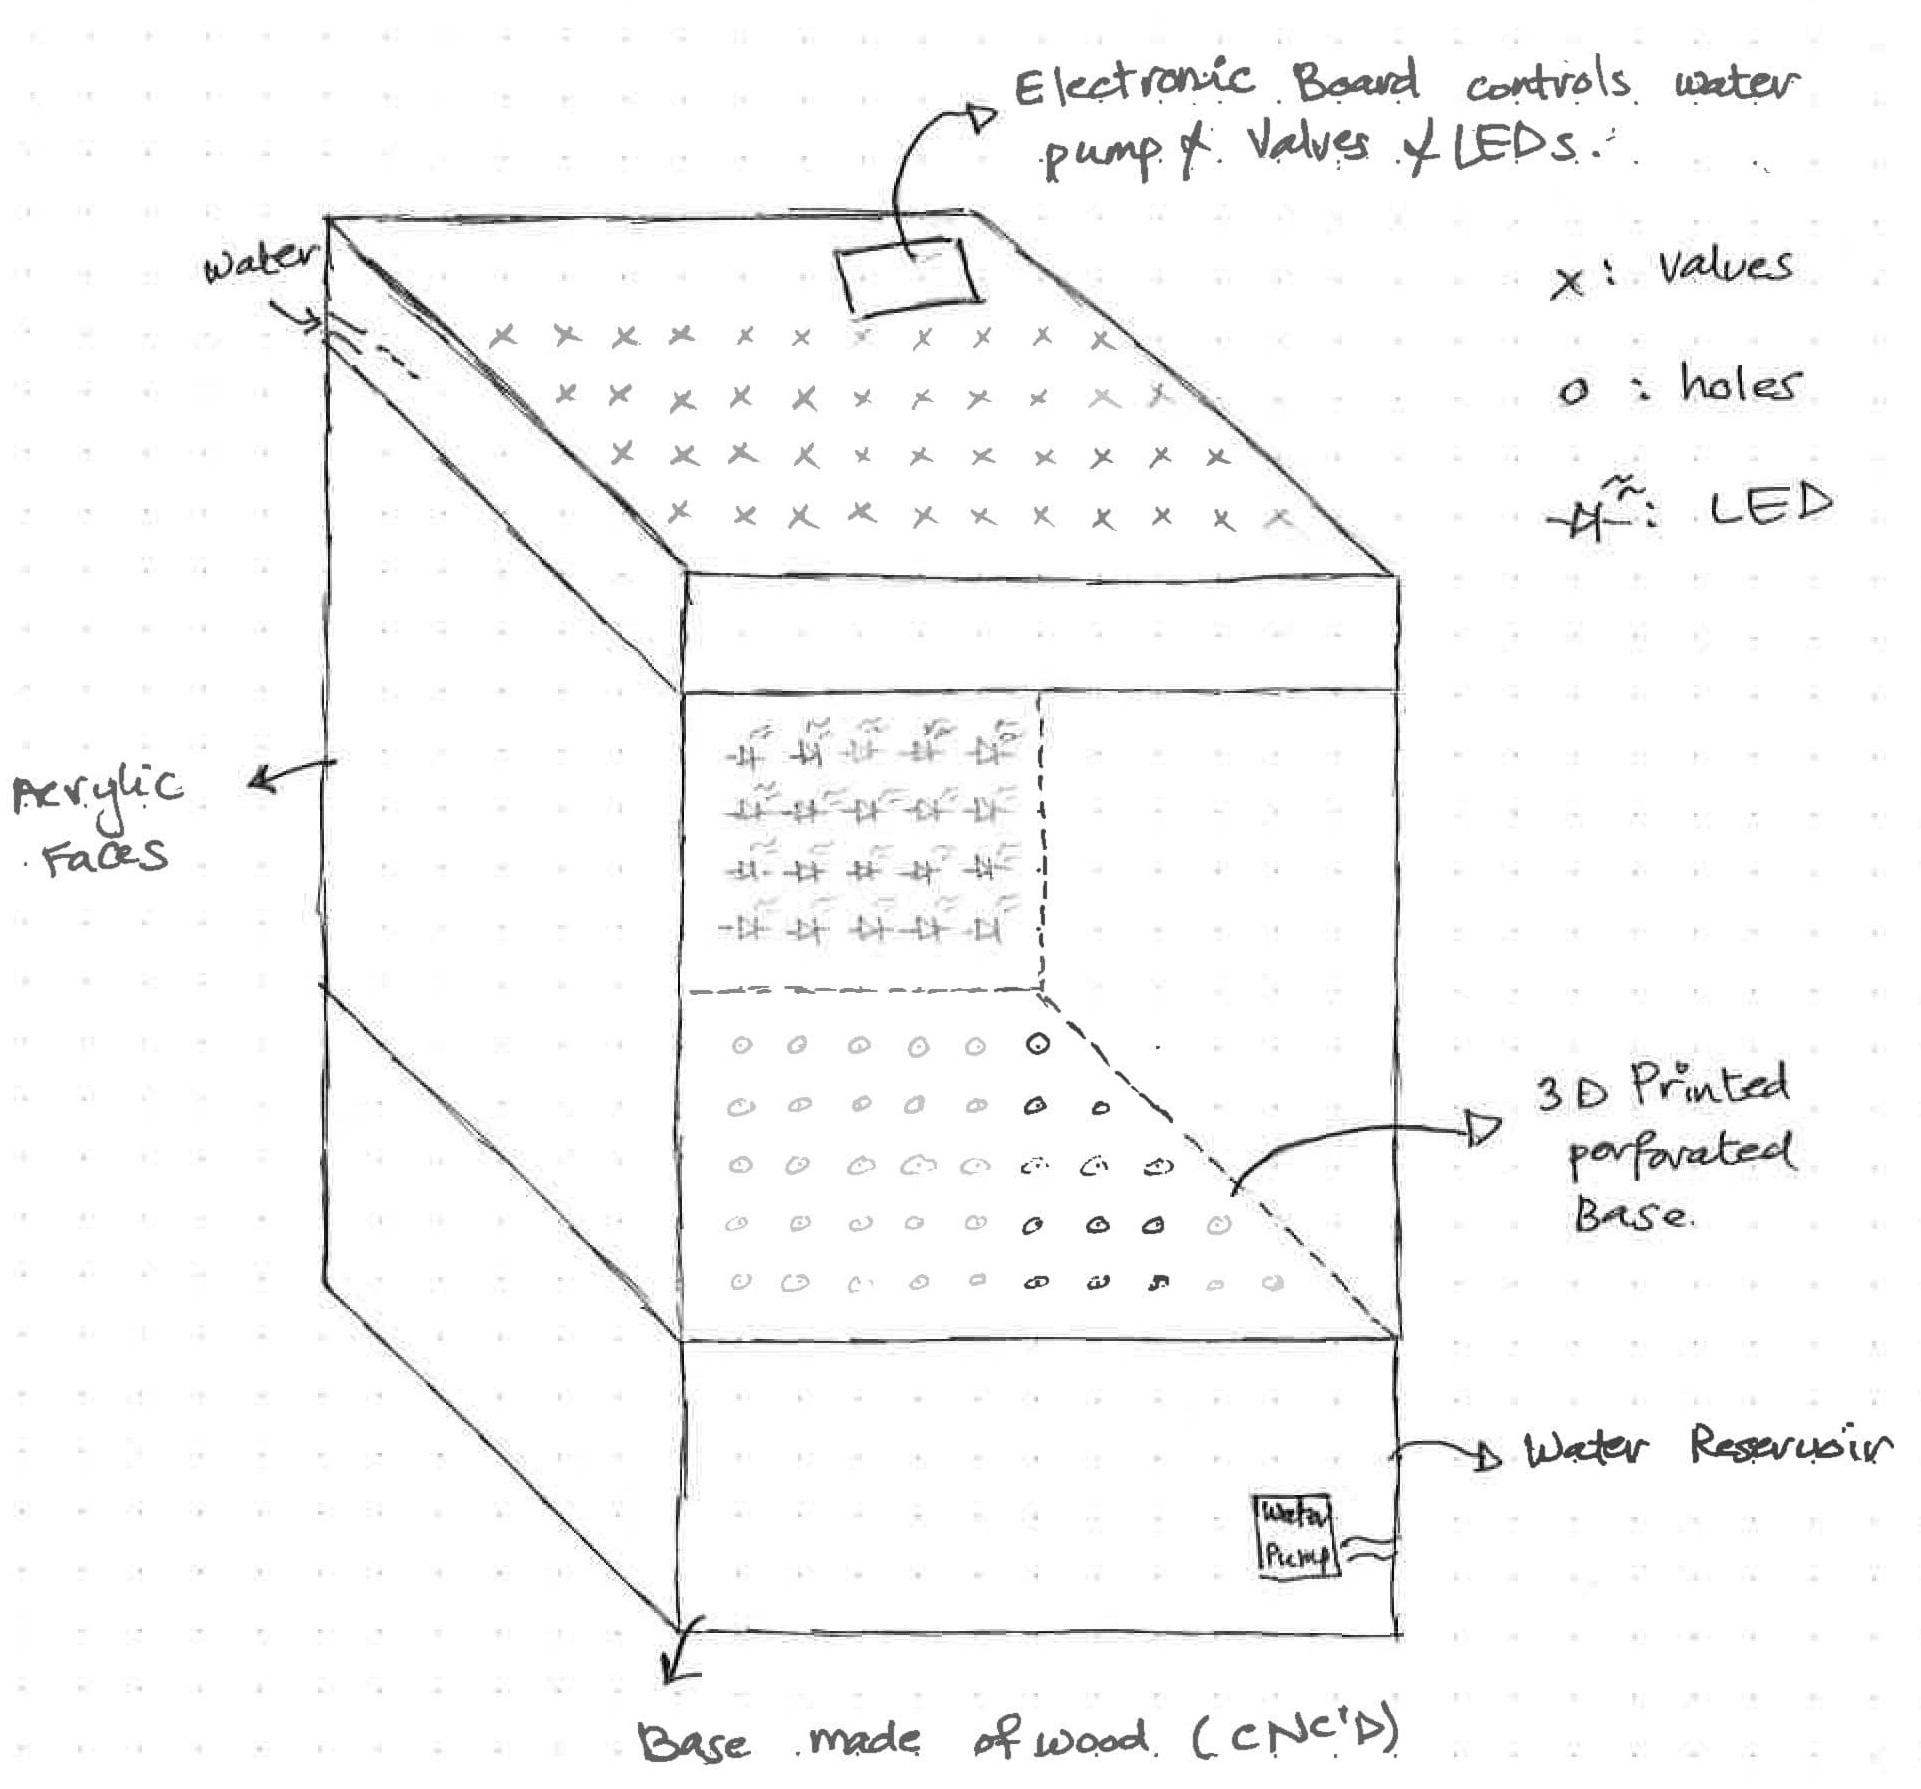 Electronic Board controls water
pump & Valves & LEDs.
water
x : Valves
o : holes
: LED
Acrylic
Faces
3D Printed
perforated
Base.
Water Reservoir
Water
Pump
Base made of wood. (CNC'D)